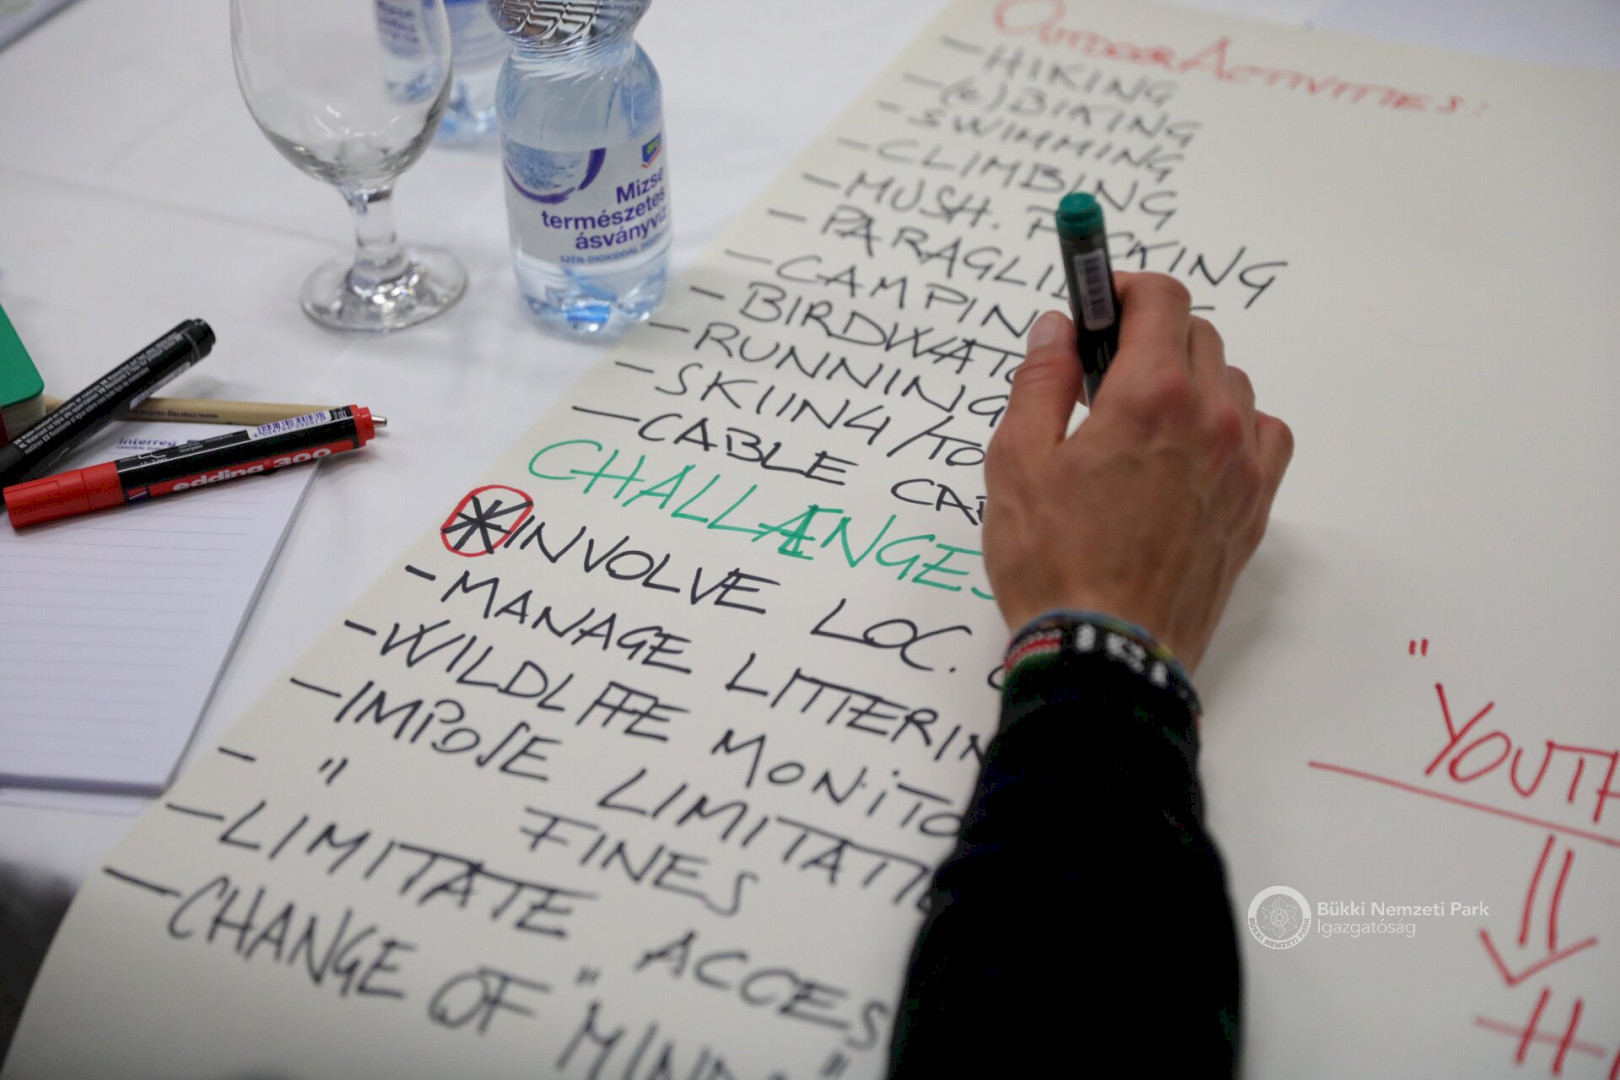 OUTDOOR ACTIVITIES:
- HIKING
- (e) BIKING
- SWIMMING
- CLIMBING
- MUSH. PICKING
- PARAGLI
- CAMPIN
- BIRDWATC
- RUNNING
- SKIING/TO
- CABLE CAR
CHALLÆNGES
* INVOLVE LOC.
- MANAGE LITTERIN
- WILDLIFE MONITO
- IMPOSE LIMITATIO
- " FINES
- LIMITATE ACCES
- CHANGE OF "MIND"
"YOUTH
Mizse
természetes
ásványvíz
SZÉN-DIOXIDDAL DÚSÍ
Interreg
edding 300
Bükki Nemzeti Park
Igazgatóság